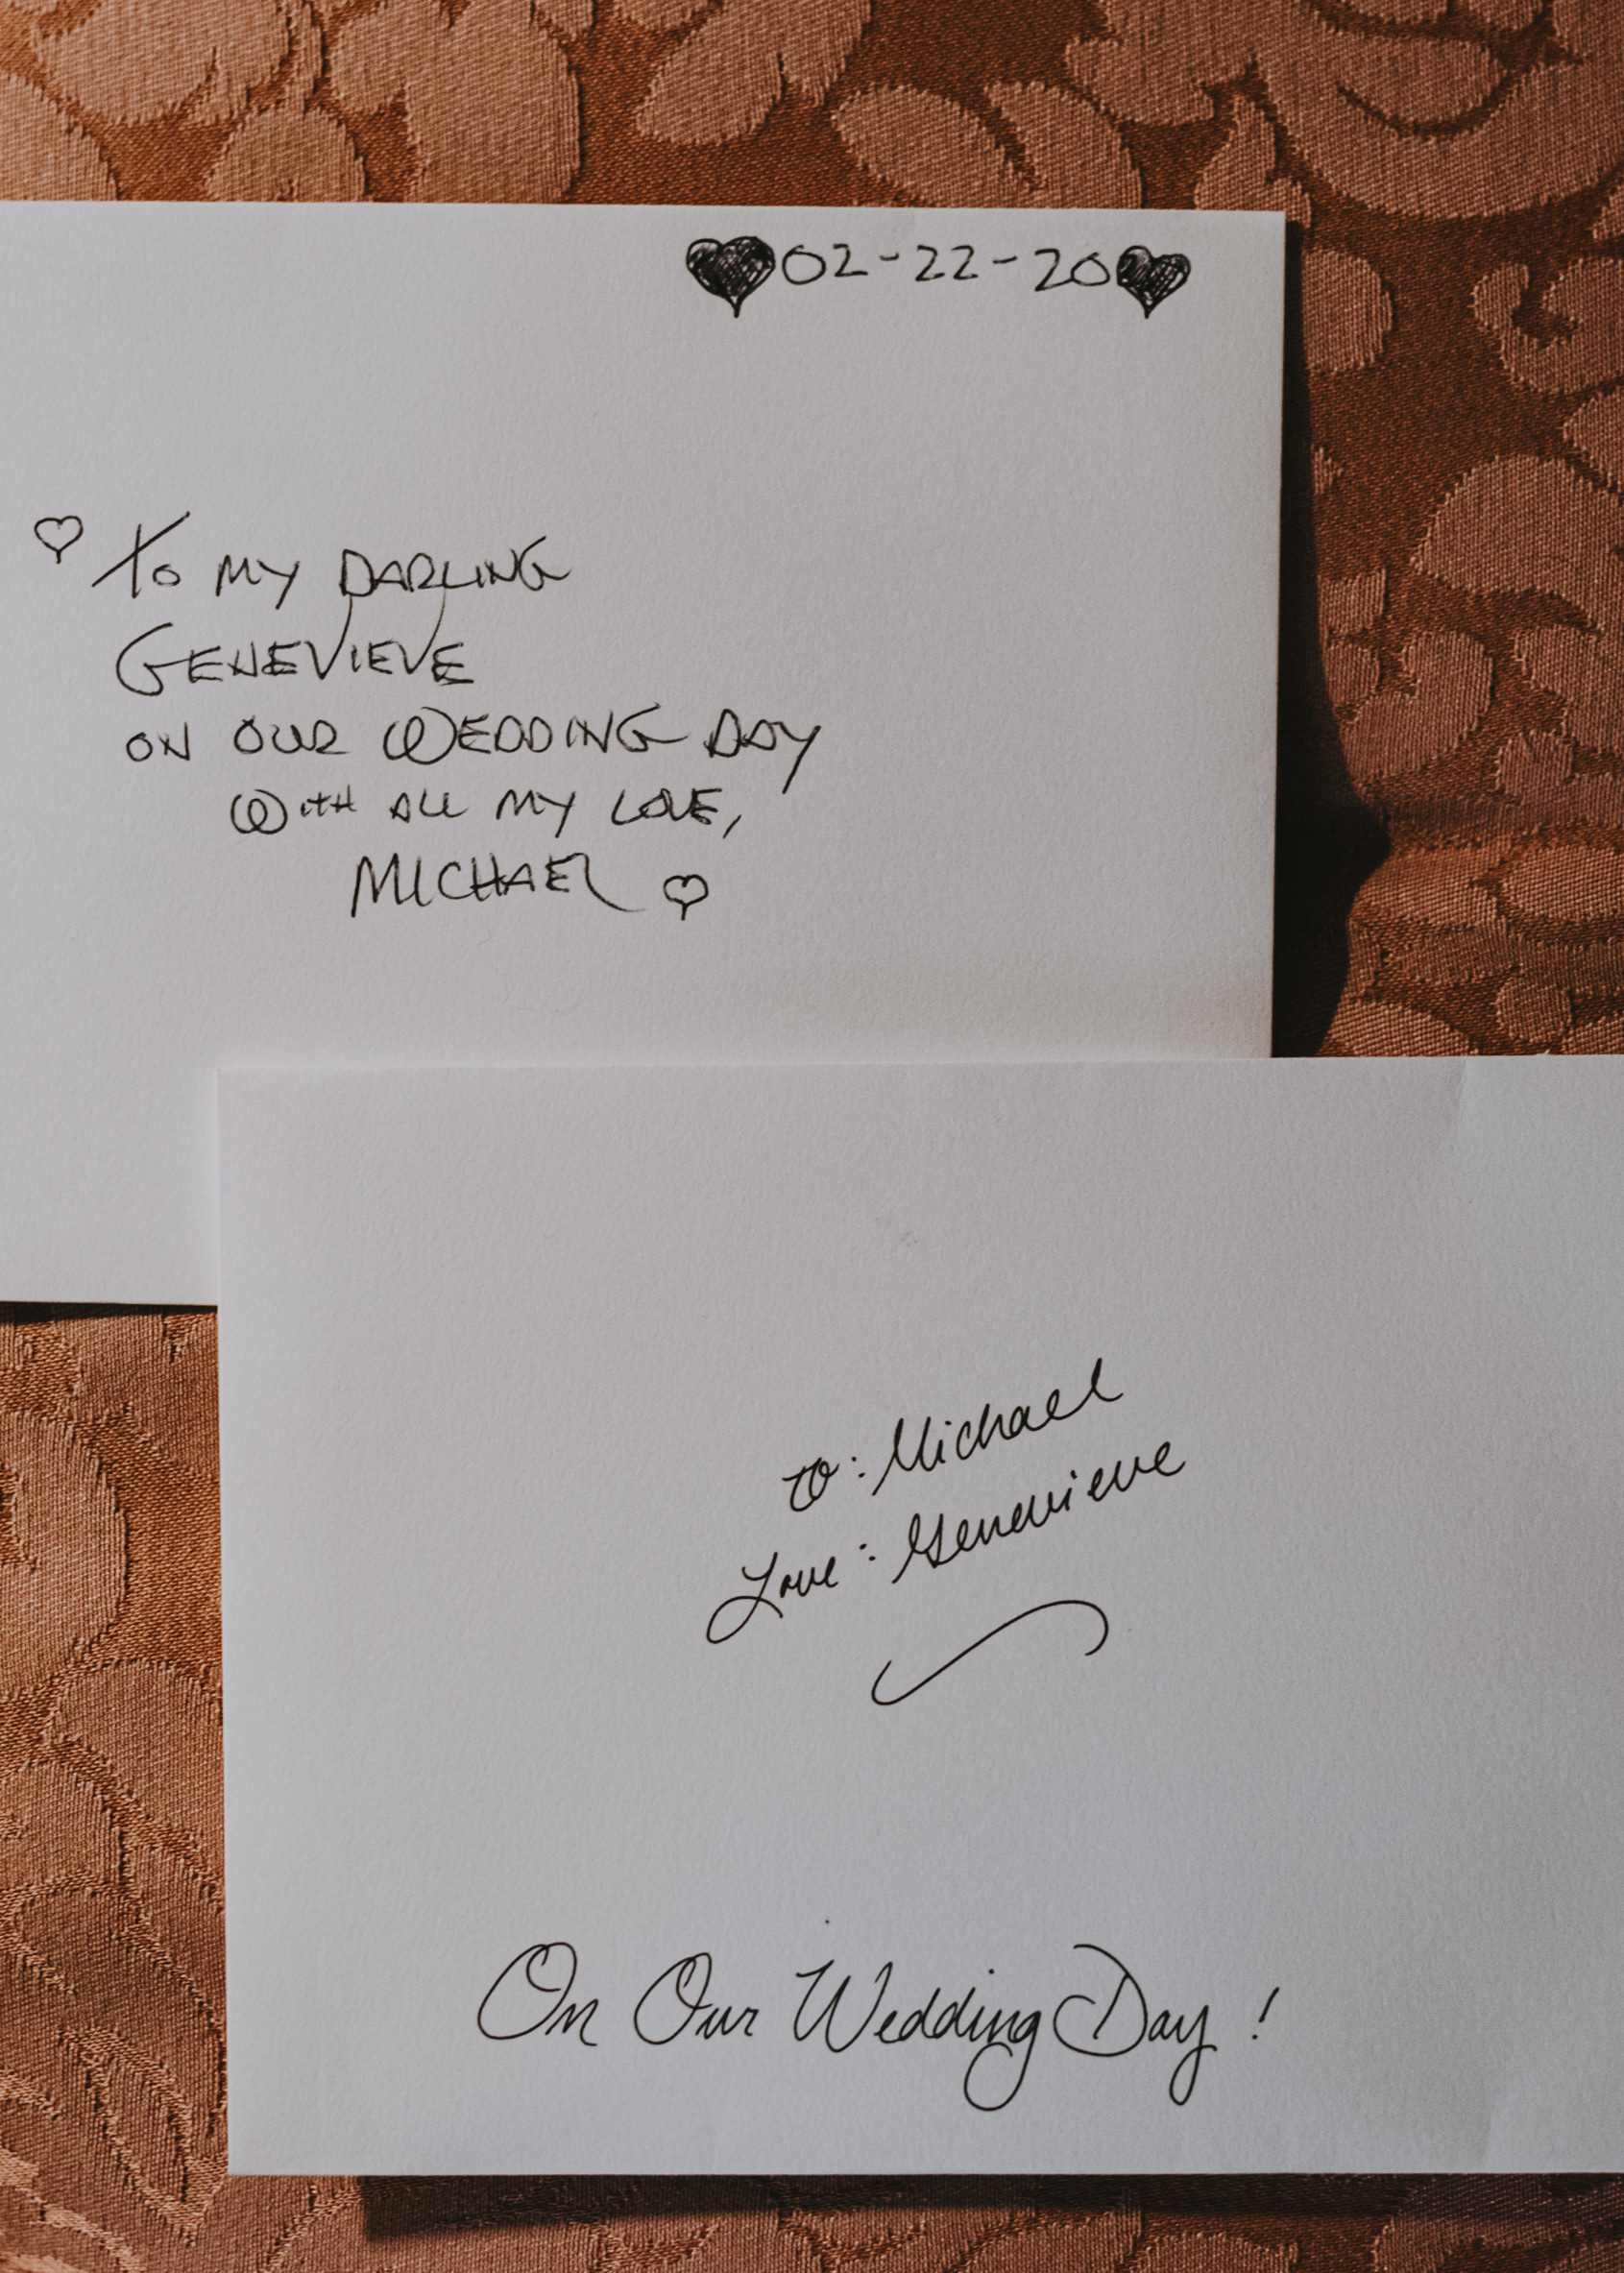 02-22-20
To MY DARLING
GENEVIEVE
ON OUR WEDDING DAY
WITH ALL MY LOVE,
MICHAEL
To: Michael
Love: Genevieve
On Our Wedding Day!